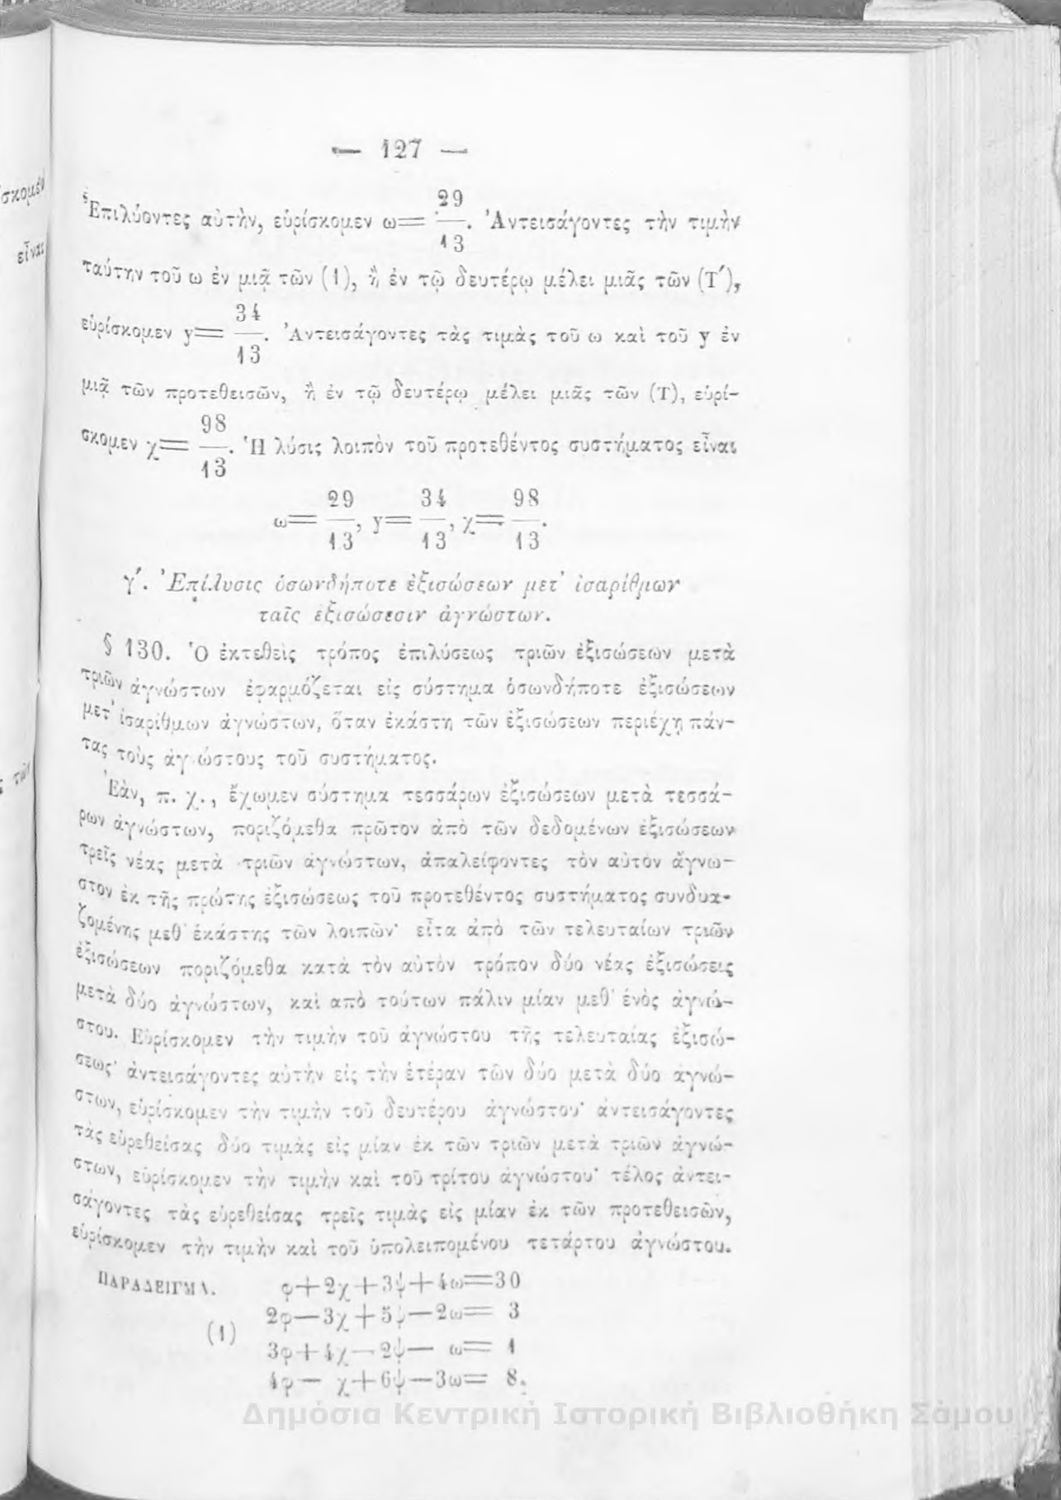 — 127 —
Ἐπιλύοντες αὐτὴν, εὑρίσκομεν ω= 29/13. Ἀντεισάγοντες τὴν τιμὴν
ταύτην τοῦ ω ἐν μιᾷ τῶν (1), ἢ ἐν τῷ δευτέρῳ μέλει μιᾶς τῶν (Τ΄),
εὑρίσκομεν y= 34/13. Ἀντεισάγοντες τὰς τιμὰς τοῦ ω καὶ τοῦ y ἐν
μιᾷ τῶν προτεθεισῶν, ἢ ἐν τῷ δευτέρῳ μέλει μιᾶς τῶν (Τ), εὑρί-
σκομεν χ= 98/13. Ἡ λύσις λοιπὸν τοῦ προτεθέντος συστήματος εἶναι
ω= 29/13, y= 34/13, χ= 98/13.
γ΄. Ἐπίλυσις ὁσωνδήποτε ἐξισώσεων μετ' ἰσαρίθμων
ταῖς ἐξισώσεσιν ἀγνώστων.
§ 130. Ὁ ἐκτεθεὶς τρόπος ἐπιλύσεως τριῶν ἐξισώσεων μετὰ
τριῶν ἀγνώστων ἐφαρμόζεται εἰς σύστημα ὁσωνδήποτε ἐξισώσεων
μετ' ἰσαρίθμων ἀγνώστων, ὅταν ἑκάστη τῶν ἐξισώσεων περιέχῃ πάν-
τας τοὺς ἀγ ώστους τοῦ συστήματος.
Ἐὰν, π. χ., ἔχωμεν σύστημα τεσσάρων ἐξισώσεων μετὰ τεσσά-
ρων ἀγνώστων, ποριζόμεθα πρῶτον ἀπὸ τῶν δεδομένων ἐξισώσεων
τρεῖς νέας μετὰ τριῶν ἀγνώστων, ἀπαλείφοντες τὸν αὐτὸν ἄγνω-
στον ἐκ τῆς πρώτης ἐξισώσεως τοῦ προτεθέντος συστήματος συνδυα-
ζομένης μεθ' ἑκάστης τῶν λοιπῶν· εἶτα ἀπὸ τῶν τελευταίων τριῶν
ἐξισώσεων ποριζόμεθα κατὰ τὸν αὐτὸν τρόπον δύο νέας ἐξισώσεις
μετὰ δύο ἀγνώστων, καὶ απὸ τούτων πάλιν μίαν μεθ' ἑνὸς ἀγνώ-
στου. Εὑρίσκομεν τὴν τιμὴν τοῦ ἀγνώστου τῆς τελευταίας ἐξισώ-
σεως· ἀντεισάγοντες αὐτὴν εἰς τὴν ἑτέραν τῶν δύο μετὰ δύο ἀγνώ-
στων, εὑρίσκομεν τὴν τιμὴν τοῦ δευτέρου ἀγνώστου· ἀντεισάγοντες
τὰς εὑρεθείσας δύο τιμὰς εἰς μίαν ἐκ τῶν τριῶν μετὰ τριῶν ἀγνώ-
στων, εὑρίσκομεν τὴν τιμὴν καὶ τοῦ τρίτου ἀγνώστου· τέλος ἀντει-
σάγοντες τὰς εὑρεθείσας τρεῖς τιμὰς εἰς μίαν ἐκ τῶν προτεθεισῶν,
εὑρίσκομεν τὴν τιμὴν καὶ τοῦ ὑπολειπομένου τετάρτου ἀγνώστου.
ΠΑΡΑΔΕΙΓΜΑ. φ+2χ+3ψ+4ω=30
2φ—3χ+5ψ—2ω= 3
(1)
3φ+4χ—2ψ— ω= 1
4φ— χ+6ψ—3ω= 8.
Δημόσια Κεντρική Ιστορική Βιβλιοθήκη Σάμου